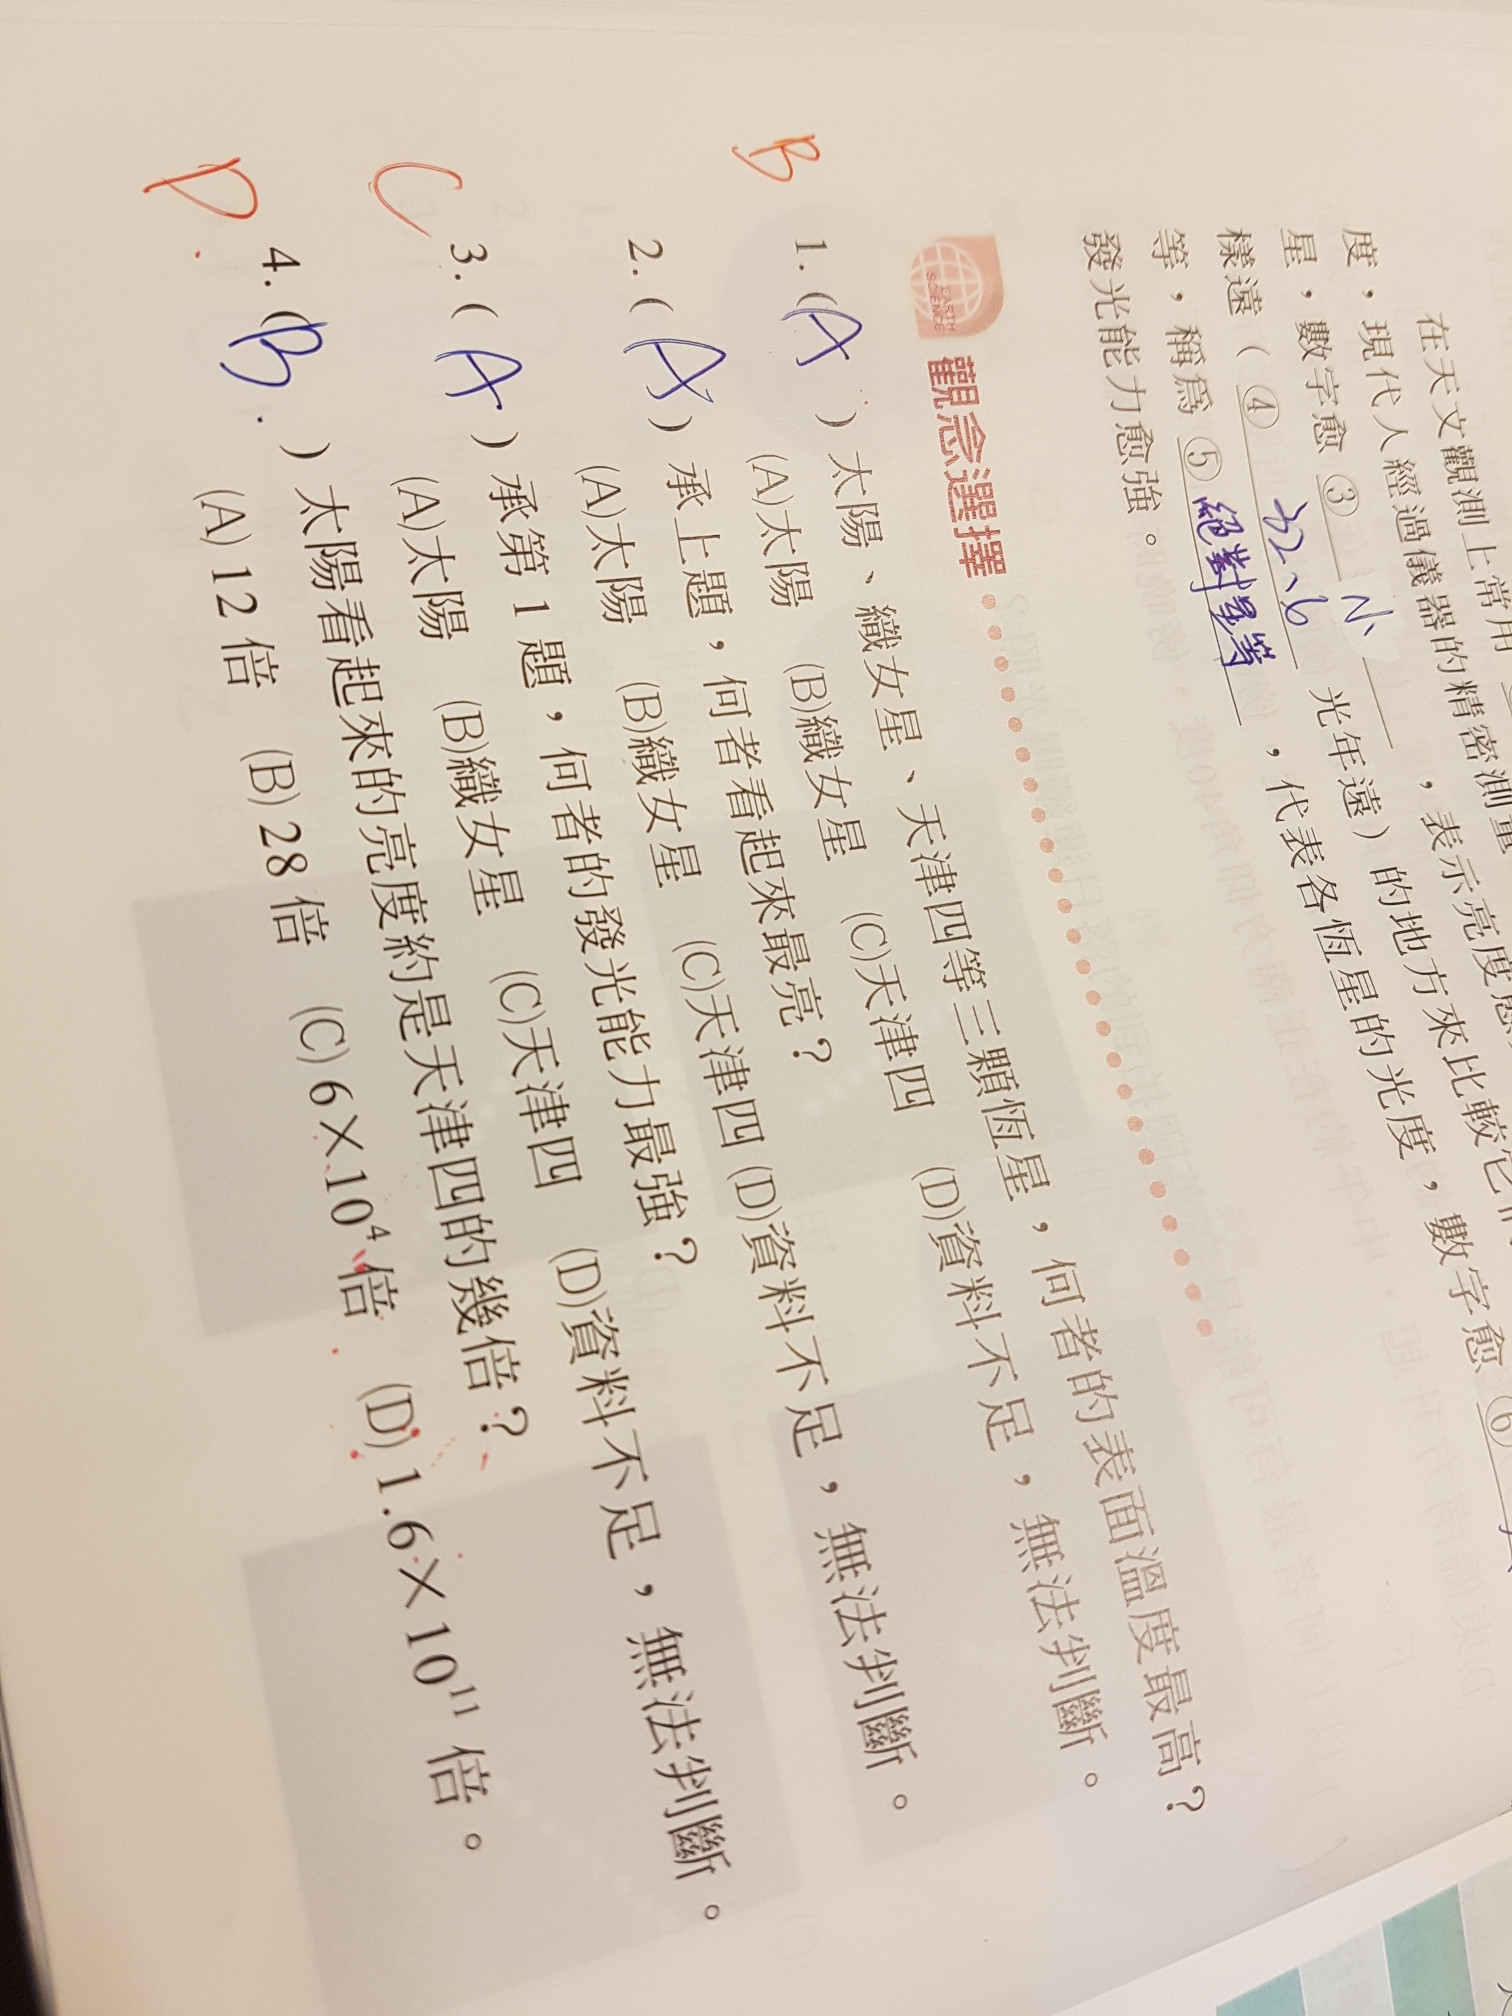 在天文觀測上常用
度，現代人經過儀器的精密測量
星，數字愈 ③ 小 ，表示亮度愈
樣遠（ ④ 32.6 光年遠）的地方來比較它
等，稱為 ⑤ 絕對星等 ，代表各恆星的光度，數字愈 ⑥
發光能力愈強。
EARTH SCIENCE
觀念選擇
B 1.( A ) 太陽、織女星、天津四等三顆恆星，何者的表面溫度最高？
(A)太陽 (B)織女星 (C)天津四 (D)資料不足，無法判斷。
2.( A ) 承上題，何者看起來最亮？
(A)太陽 (B)織女星 (C)天津四 (D)資料不足，無法判斷。
C 3.( A ) 承第 1 題，何者的發光能力最強？
(A)太陽 (B)織女星 (C)天津四 (D)資料不足，無法判斷。
D 4.( B ) 太陽看起來的亮度約是天津四的幾倍？
(A) 12 倍 (B) 28 倍 (C) 6×10⁴ 倍 (D) 1.6×10¹¹ 倍。